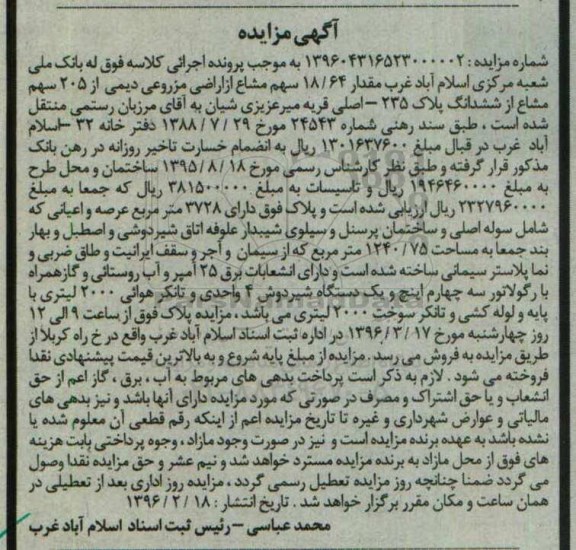 آگهی مزایده
شماره مزایده : ۱۳۹۶۰۴۳۱۶۵۲۳۰۰۰۰۰۲ به موجب پرونده اجرائی کلاسه فوق له بانک ملی
شعبه مرکزی اسلام آباد غرب مقدار ۱۸/۶۴ سهم مشاع ازاراضی مزروعی دیمی از ۲۰۵ سهم
مشاع از ششدانگ پلاک ۲۳۵ – اصلی قریه میرعزیزی شیان به آقای مرزبان رستمی منتقل
شده است ، طبق سند رهنی شماره ۲۴۵۴۳ مورخ ۱۳۸۸/۷/۲۹ دفتر خانه ۳۲ –اسلام
آباد غرب در قبال مبلغ ۱۳۰۱۶۳۷۶۰۰ ریال به انضمام خسارت تاخیر روزانه در رهن بانک
مذکور قرار گرفته و طبق نظر کارشناس رسمی مورخ ۱۳۹۵/۸/۱۸ ساختمان و محل طرح
به مبلغ ۱۹۴۶۴۶۰۰۰۰ ریال و تاسیسات به مبلغ ۳۸۱۵۰۰۰۰۰ ریال که جمعا به مبلغ
۲۳۲۷۹۶۰۰۰۰ ریال ارزیابی شده است و پلاک فوق دارای ۳۷۲۸ متر مربع عرصه و اعیانی که
شامل سوله اصلی و ساختمان پرسنل و سیلوی شیبدار علوفه اتاق شیردوشی و اصطبل و بهار
بند جمعا به مساحت ۱۲۴۰/۷۵ متر مربع که از سیمان و آجر و سقف ایرانیت و طاق ضربی و
نما پلاستر سیمانی ساخته شده است و دارای انشعابات برق ۲۵ آمپر و آب روستائی و گازهمراه
با رگولاتور سه چهارم اینچ و یک دستگاه شیردوش ۴ واحدی و تانکر هوائی ۲۰۰۰ لیتری با
پایه و لوله کشی و تانکر سوخت ۲۰۰۰ لیتری می باشد ، مزایده پلاک فوق از ساعت ۹ الی ۱۲
روز چهارشنبه مورخ ۱۳۹۶/۳/۱۷ در اداره ثبت اسناد اسلام آباد غرب واقع در خ راه کربلا از
طریق مزایده به فروش می رسد . مزایده از مبلغ پایه شروع و به بالاترین قیمت پیشنهادی نقدا
فروخته می شود . لازم به ذکر است پرداخت بدهی های مربوط به آب ، برق ، گاز اعم از حق
انشعاب و یا حق اشتراک و مصرف در صورتی که مورد مزایده دارای آنها باشد و نیز بدهی های
مالیاتی و عوارض شهرداری و غیره تا تاریخ مزایده اعم از اینکه رقم قطعی آن معلوم شده یا
نشده باشد به عهده برنده مزایده است و نیز در صورت وجود مازاد ، وجوه پرداختی بابت هزینه
های فوق از محل مازاد به برنده مزایده مسترد خواهد شد و نیم عشر و حق مزایده نقدا وصول
می گردد ضمنا چنانچه روز مزایده تعطیل رسمی گردد ، مزایده روز اداری بعد از تعطیلی در
همان ساعت و مکان مقرر برگزار خواهد شد . تاریخ انتشار : ۱۳۹۶/۲/۱۸
محمد عباسی –رئیس ثبت اسناد اسلام آباد غرب